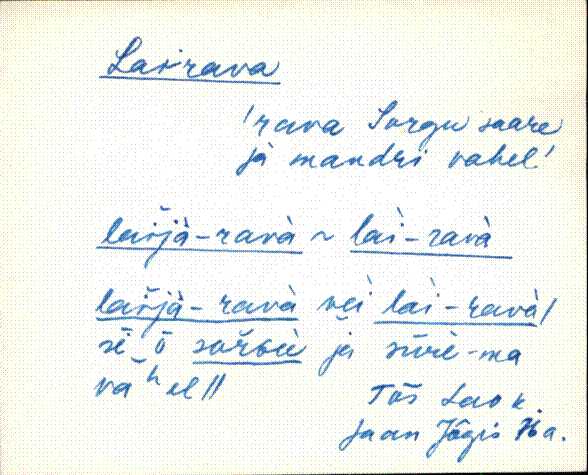 Lairava
'rava Sorgu saare
ja mandri vahel'
laĭjà-ravà ~ laì-ravà
laĭjà-ravà vèi laì-ravà/
sē̆ ō sorbù jà sūrè-ma
vaʰel//
Tõs Laok.
Jaan Jõgis 76 a.